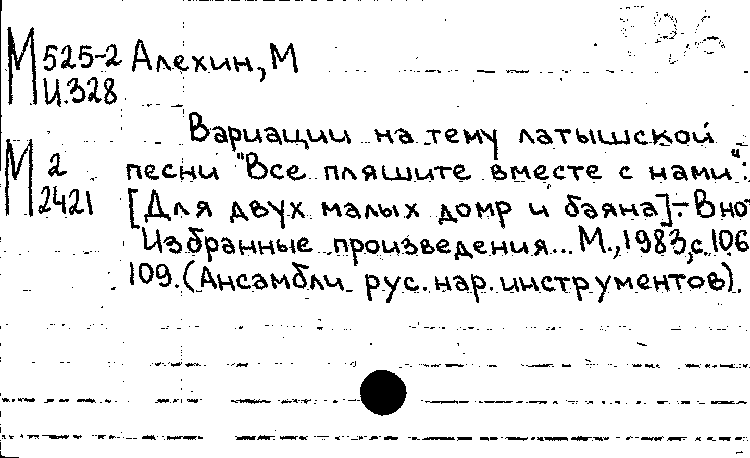 М 525-2 Алехин, М
И.328
Вариации на тему латышской
М 2 песни "Все пляшите вместе с нами".
2421 [Для двух малых домр и баяна].- В но
Избранные произведения... М., 1983, с. 106
109. (Ансамбли рус. нар. инструментов).